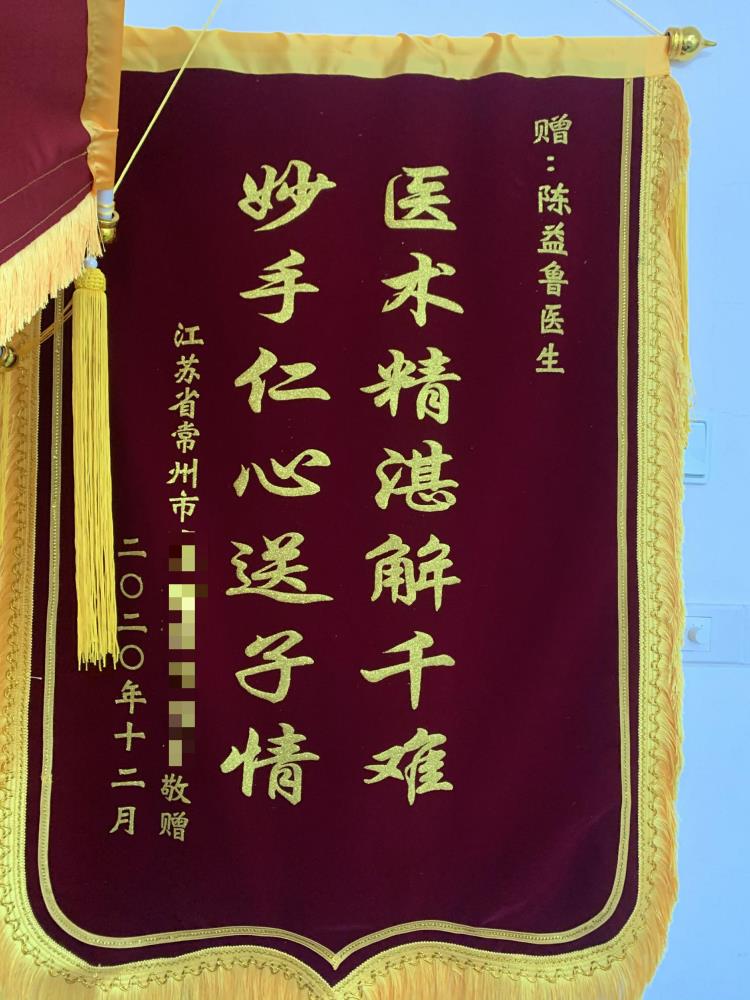 赠：陈益鲁医生
医术精湛解千难
妙手仁心送子情
江苏省常州市
敬赠
二〇二〇年十二月